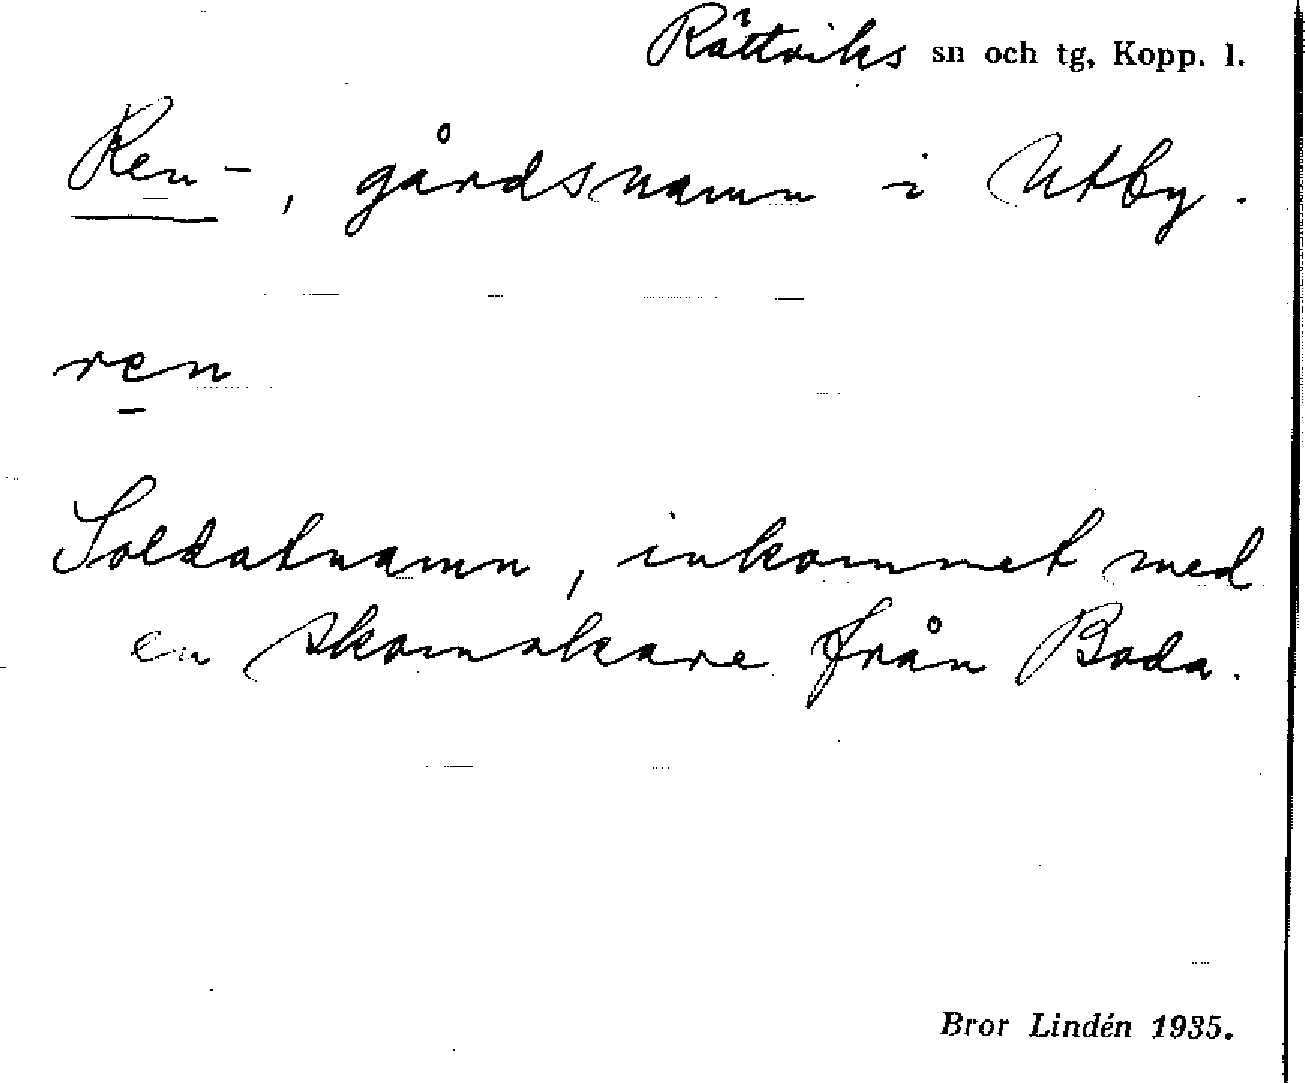 Rättviks sn och tg, Kopp. l.
Ren-, gårdsnamn i Utby.
ren
Soldatnamn, inkommet med
en skomakare från Boda.
Bror Lindén 1935.